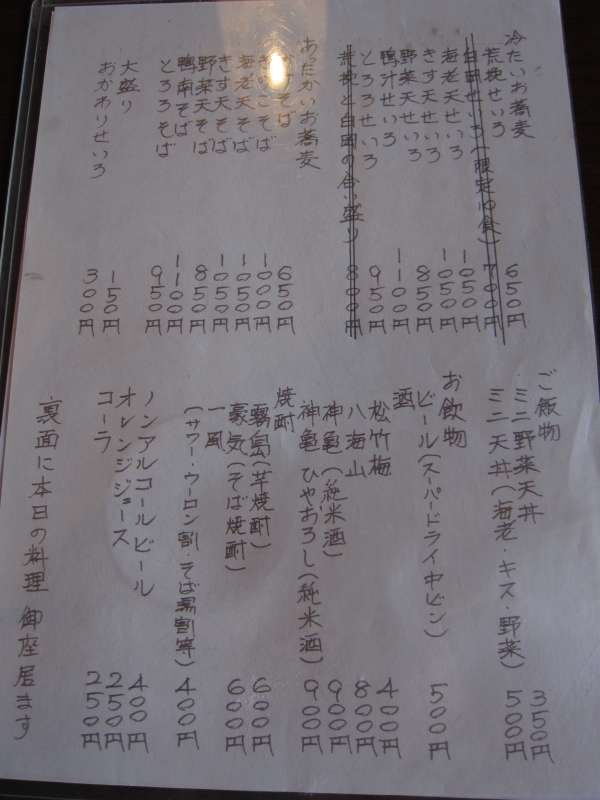 冷たいお蕎麦
荒挽せいろ 650円
白田せいろ(限定10食) 700円
海老天せいろ 1050円
きす天せいろ 1050円
野菜天せいろ 850円
鴨汁せいろ 1100円
とろろせいろ 950円
荒挽と白田の合い盛り 800円
あったかいお蕎麦
そば 650円
きのこそば 1000円
海老天そば 1050円
きす天そば 1050円
野菜天そば 850円
鴨南そば 1100円
とろろそば 950円
大盛り 150円
おかわりせいろ 300円
ご飯物
ミニ野菜天丼 350円
ミニ天丼(海老・キス・野菜) 500円
お飲物
ビール(スーパードライ中ビン) 500円
酒
松竹梅 400円
八海山 800円
神亀(純米酒) 900円
神亀ひやおろし(純米酒) 900円
焼酎
霧島(芋焼酎) 600円
豪気(そば焼酎) 600円
一風
(サワー・ウーロン割・そば湯割等) 400円
ノンアルコールビール 400円
オレンジジュース 250円
コーラ 250円
裏面に本日の料理御座居ます